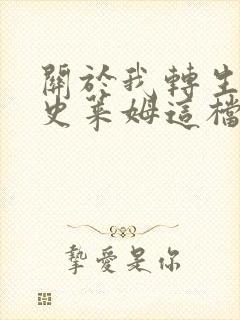 關於我轉生
史萊姆這檔
摯愛是你